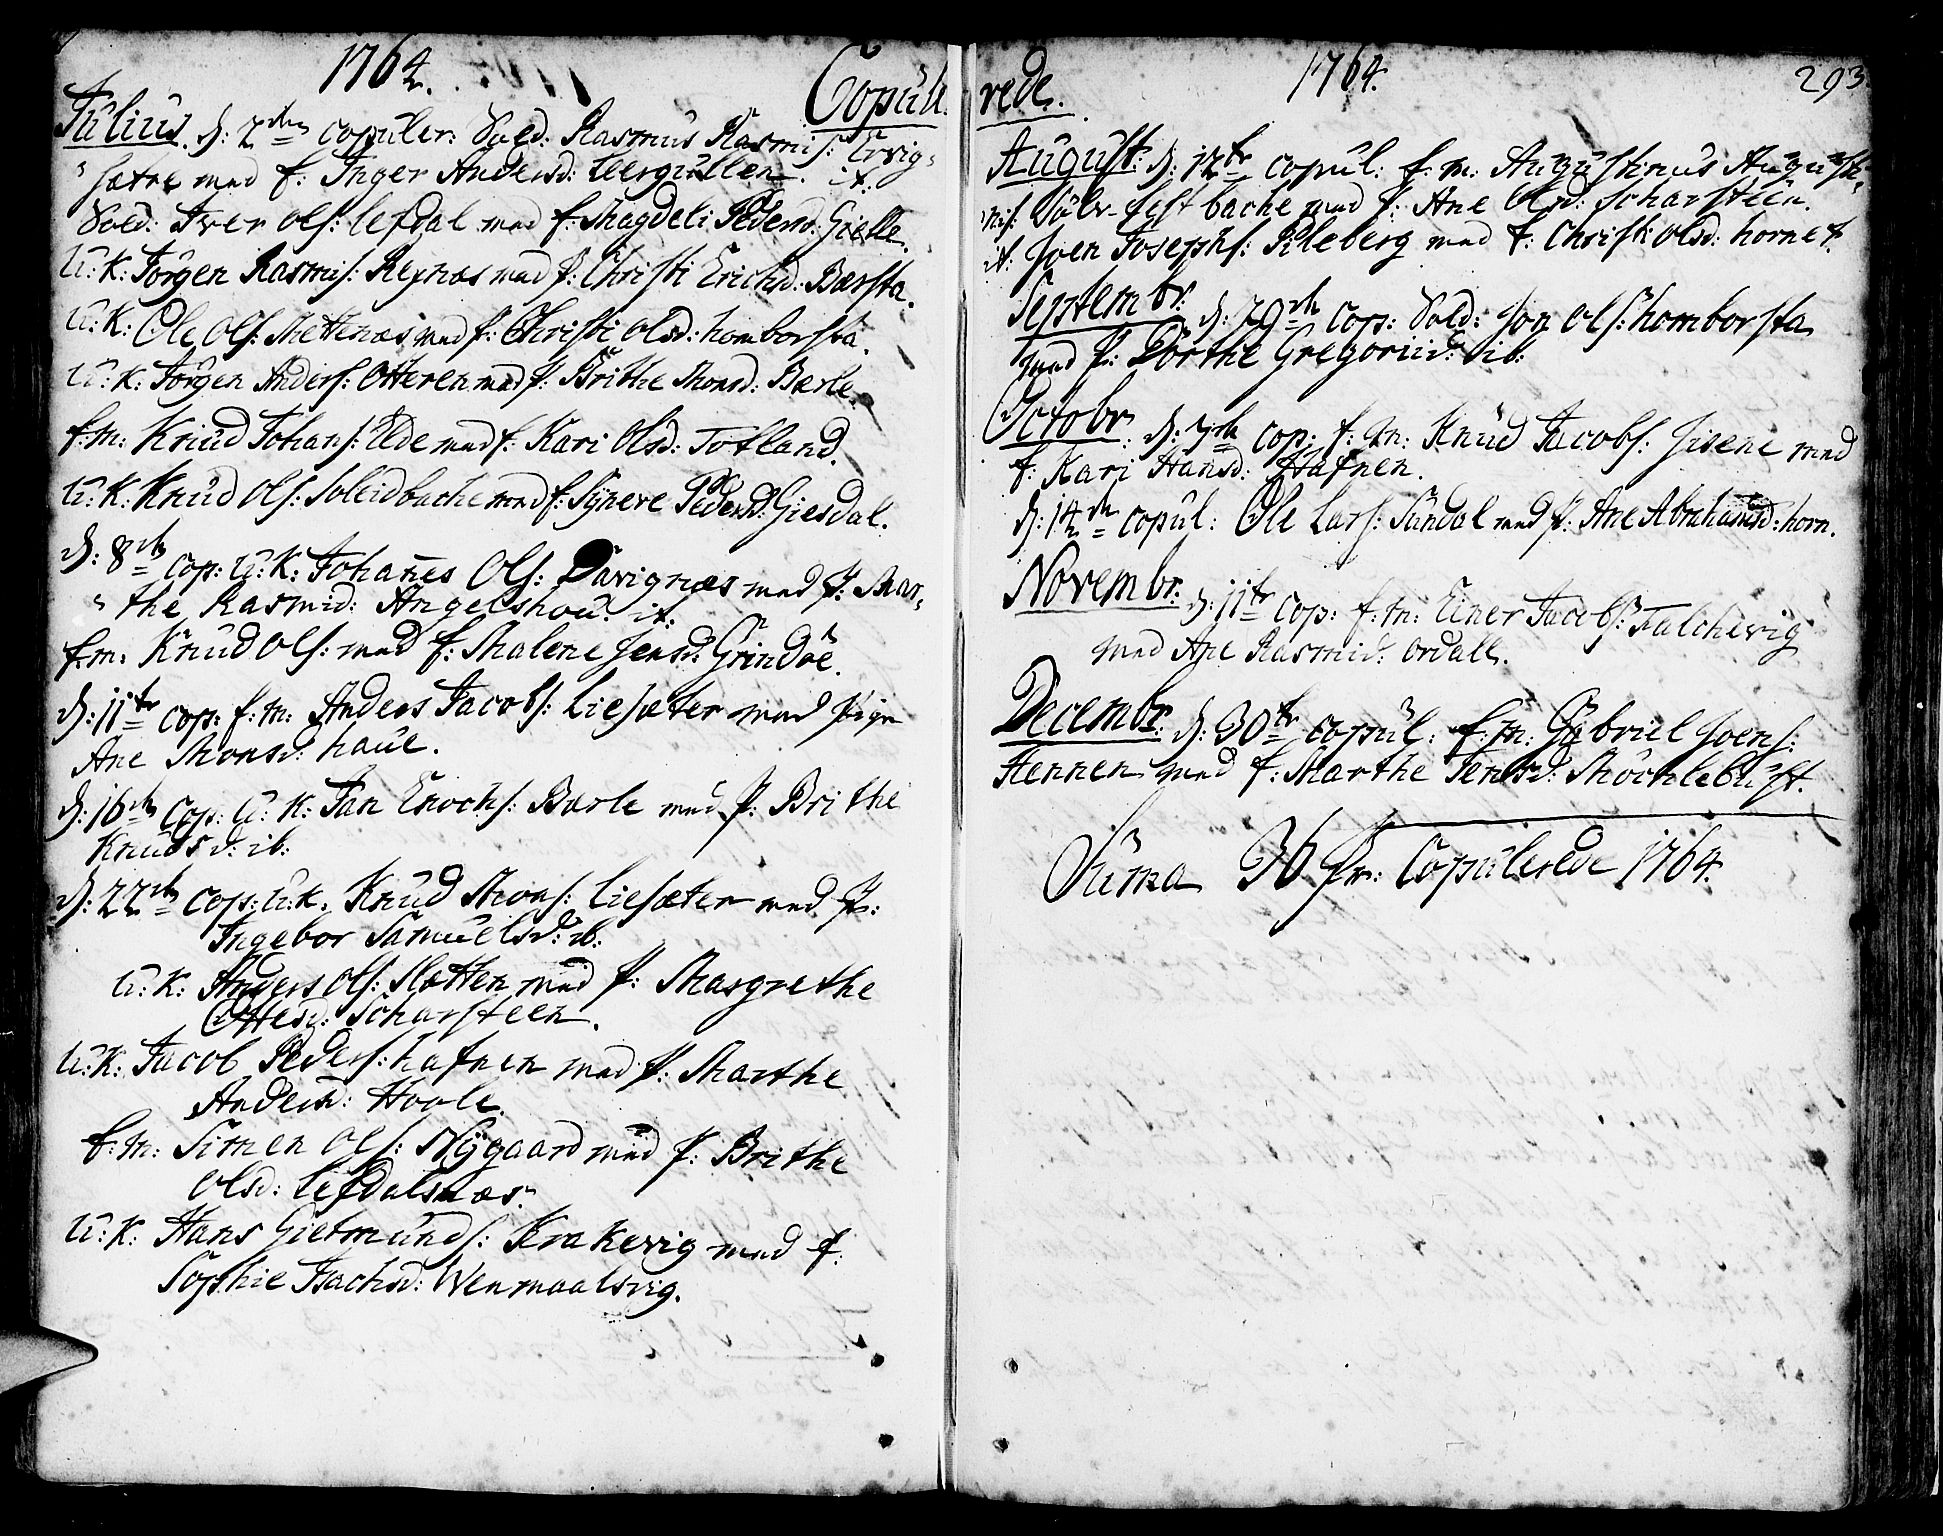 1764.
Copule
Julius. d: 2den copuler: Sold: Rasmus Rasmiſ: Ervig-
sætre med f: Inger Andersd: Leergullen. it.
Sold: Iver Olſ: Lefdal med f: Magdeli Pedersd: Gielle.
U: K: Jörgen Rasmiſ: Reÿnæs med P: Christi Erichsd: Barsta.
U: K: Ole Olſ: Mettenæs med f: Christi Olsd: homborsta.
U: K: Jörgen Andersſ: Otteren med P: Brithe Monsd: Barle.
f: m: Knud Johanſ: Elde med f: Kari Olsd: Totland.
U: K: Knud Olſ: Soleidbache med f: Sÿneve Pedersd: Giesdal.
d: 8de cop: U: K: Johañes Olſ: Davignæs med P: Mar-
the Rasmid: Angelshou. it.
f: m: Knud Olſ: med f: Malene Jensd: Grindöe.
d: 11te cop: f: m: Anders Jacobſ: Liesæter med Pige
Ane Monsd: haue.
d: 16de Cop: U: K: Jan Enochſ: Barle med P: Brithe
Knudsd: ib:
d: 22de cop: U: K. Knud Monſ: Liesæter med P:
Ingebor Samuelsd: ib:
U: K: Anders Olſ: Sletten med P: Margrethe
Ottesd: Scharsteen.
U: K: Jacob Pederſ: hafnen med P: Marthe
Andersd: Hoole.
f: m: Simen Olſ: Nÿgaard med P: Brithe
Olsd: Lefdalsnæs.
U: K: Hans Gietmundſ: Krakevig med f:
Sophie Isachsd: Wenmaalsvig.
rede.
1764.
293.
August: d: 12te copul: f: m: Augustinus Augusti-
niſ: Sölv-festbache med f: Ane Olsd: Scharsteen.
it: Joen Josephſ: Rleberg med f: Christi Olsd: hornet.
Septembr: d: 29de Cop: Sold: Jon Olſ: homborsta
med P: Dorthe Gregoriid: ib:
Octobr. d: 7de cop: f: m: Knud Jacobſ: Jisene med
f: Kari Hansd: Hafnen.
d: 14de copul: Ole Larſ: Sundal med P: Ane Abrahamsd: horn.
Novembr: d: 11te cop: f: m: Einer Jacobſ: Falchevig
med Ane Rasmid: Ordall.
Decembr: d: 30te copul: f: m: Gabriel Joenſ:
Hennen med f: Marthe Jensd: Möchlebust.
Suma 36 Pr: Copulerede 1764.